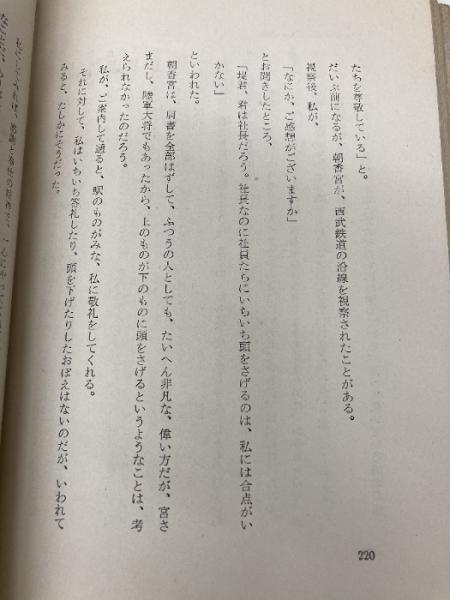 たちを尊敬している」と。
だいぶ前になるが、朝香宮が、西武鉄道の沿線を視察されたことがある。
視察後、私が、
「なにか、ご感想がございますか」
とお聞きしたところ、
「堤君、君は社長だろう。社長なのに社員たちにいちいち頭をさげるのは、私には合点がい
かない」
といわれた。
朝香宮は、肩書を全部はずして、ふつうの人としても、たいへん非凡な、偉い方だが、宮さ
まだし、陸軍大将でもあったから、上のものが下のものに頭をさげるというようなことは、考
えられなかったのだろう。
私が、ご案内して通ると、駅のものがみな、私に敬礼をしてくれる。
それに対して、私はいちいち答礼したり、頭を下げたりしたおぼえはないのだが、いわれて
みると、たしかにそうだった。
220